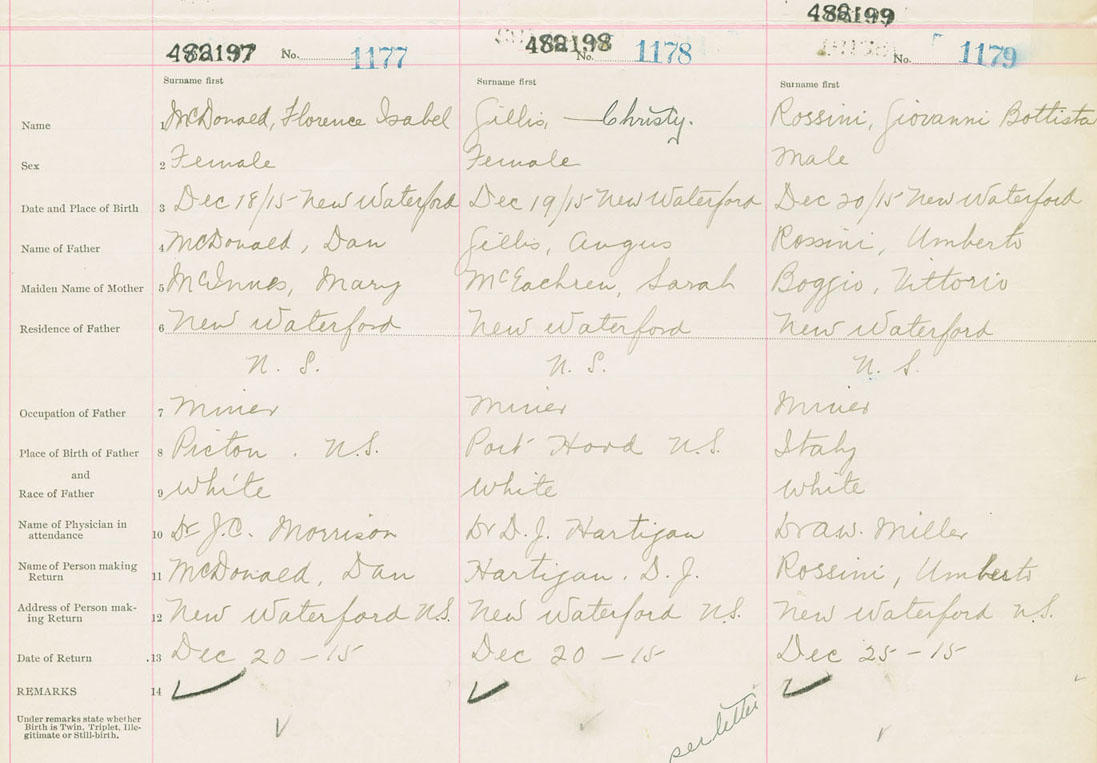 482197 No. 1177 482198 No. 1178 482199 No. 1179
Surname first Surname first Surname first
Name 1 McDonald, Florence Isabel Gillis, — Christy. Rossini, Giovanni Bottista
Sex 2 Female Female Male
Date and Place of Birth 3 Dec 18/15 New Waterford Dec 19/15 New Waterford Dec 20/15 New Waterford
Name of Father 4 McDonald, Dan Gillis, Angus Rossini, Umberto
Maiden Name of Mother 5 McInnes, Mary McEachren, Sarah Boggio, Vittorio
Residence of Father 6 New Waterford New Waterford New Waterford
N. S. N. S. N. S.
Occupation of Father 7 Miner Miner Miner
Place of Birth of Father 8 Picton . N.S. Port Hood N.S. Italy
and
Race of Father 9 White White White
Name of Physician in attendance 10 Dr J.C. Morrison Dr D. J. Hartigan Dr A.W. Miller
Name of Person making Return 11 McDonald, Dan Hartigan. D. J. Rossini, Umberto
Address of Person mak-ing Return 12 New Waterford N.S. New Waterford N.S. New Waterford N.S.
Date of Return .13 Dec 20 – 15 Dec 20 – 15 Dec 25 – 15
REMARKS 14
Under remarks state whether
Birth is Twin, Triplet, Ille-
gitimate or Still-birth.
per letter